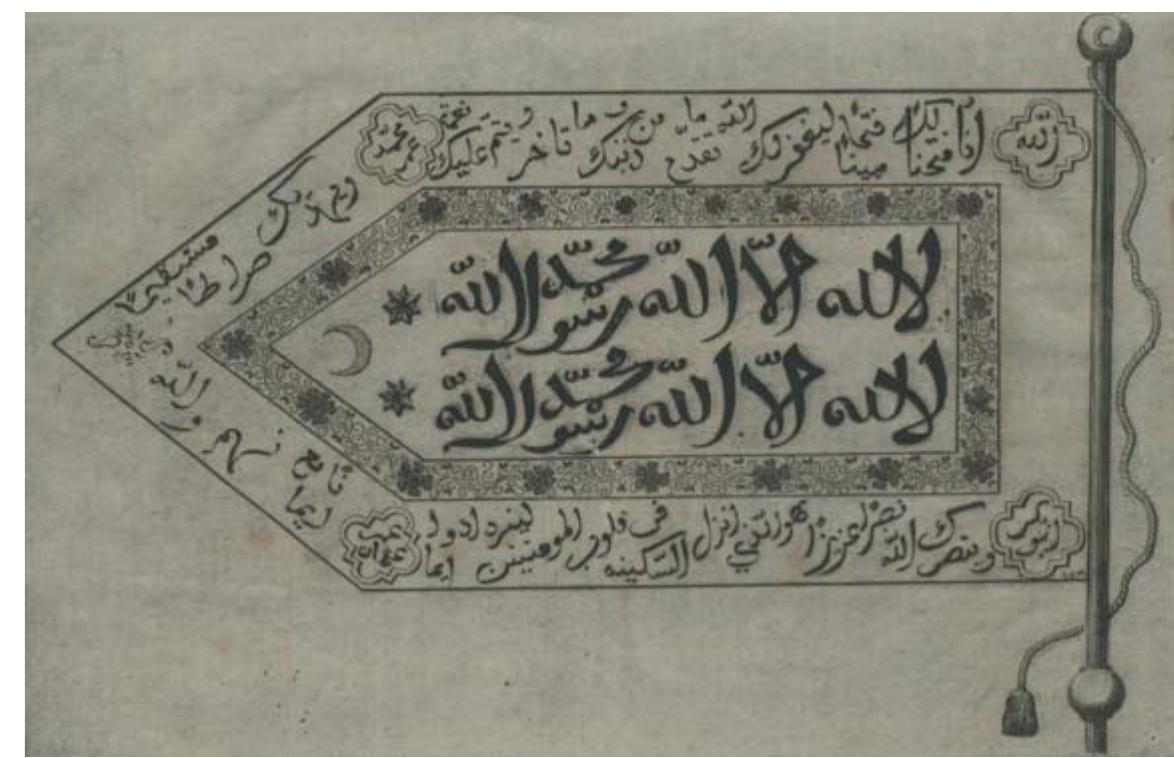 الله
انا فتحنا لك فتحا مبينا ليغفر لك الله ما تقدم من ذنبك و ما تاخر و يتم نعمته عليك
محمد عمر
و يهديك صراطا مستقيما
لا اله الا الله محمد رسول الله
لا اله الا الله محمد رسول الله
ابو بكر
و ينصرك الله نصرا عزيزا هو الذي انزل السكينه في قلوب المومنين ليزدادوا ايما
عثمان
ايما نا مع نهم و الله